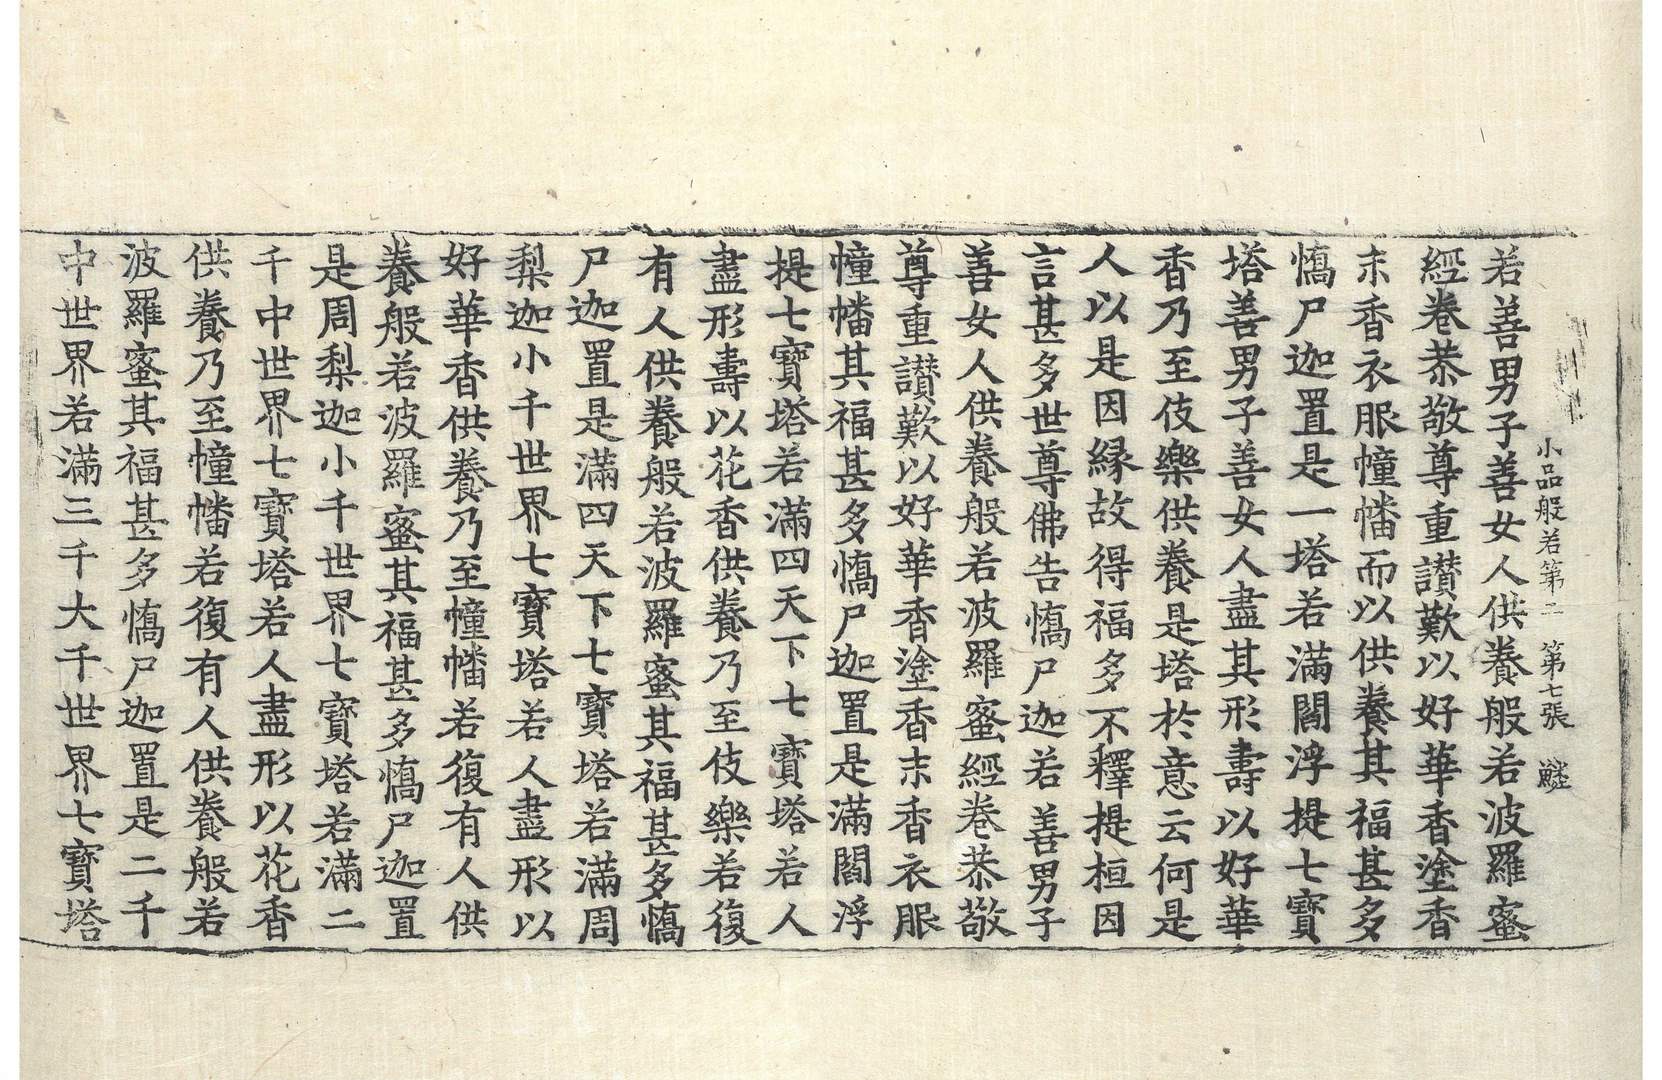 小品般若第二　第七張　鱗
若善男子善女人供養般若波羅蜜
經卷恭敬尊重讃歎以好華香塗香
末香衣服幢幡而以供養其福甚多
憍尸迦置是一塔若滿閻浮提七寶
塔善男子善女人盡其形壽以好華
香乃至伎樂供養是塔於意云何是
人以是因緣故得福多不釋提桓因
言甚多世尊佛告憍尸迦若善男子
善女人供養般若波羅蜜經卷恭敬
尊重讃歎以好華香塗香末香衣服
幢幡其福甚多憍尸迦置是滿閻浮
提七寶塔若滿四天下七寶塔若人
盡形壽以花香供養乃至伎樂若復
有人供養般若波羅蜜其福甚多憍
尸迦置是滿四天下七寶塔若滿周
梨迦小千世界七寶塔若人盡形以
好華香供養乃至幢幡若復有人供
養般若波羅蜜其福甚多憍尸迦置
是周梨迦小千世界七寶塔若滿二
千中世界七寶塔若人盡形以花香
供養乃至幢幡若復有人供養般若
波羅蜜其福甚多憍尸迦置是二千
中世界若滿三千大千世界七寶塔